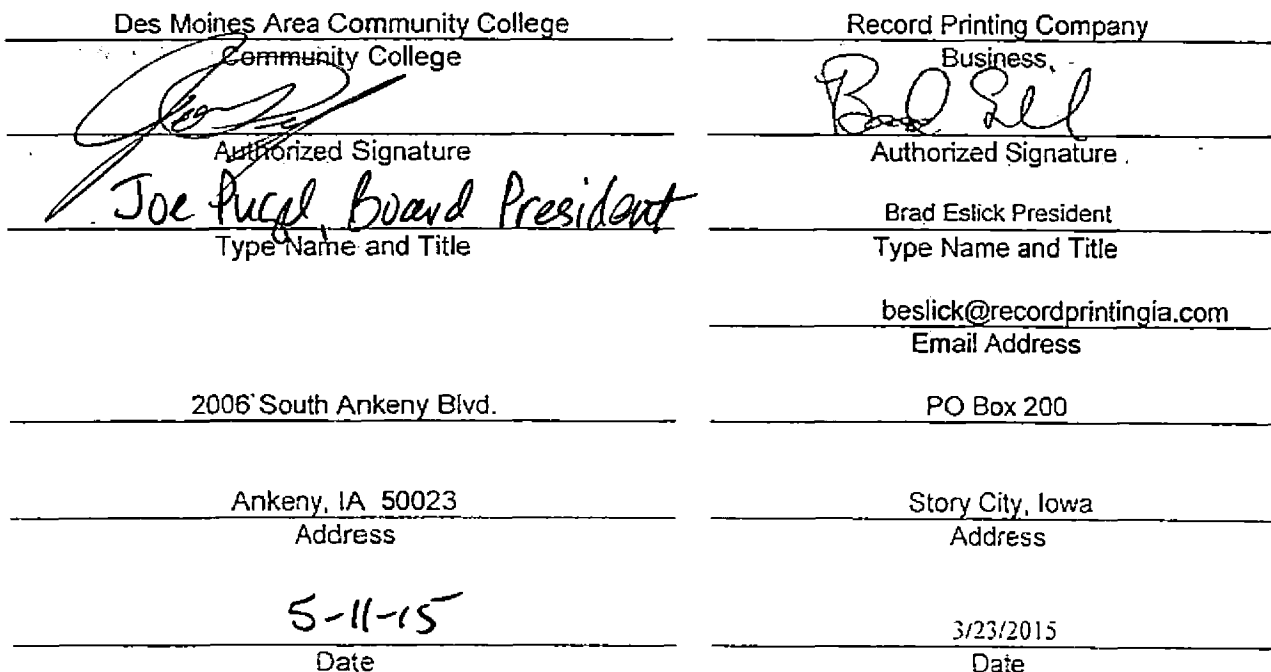 Des Moines Area Community College
Community College
Authorized Signature
Joe Pugel, Board President
Type Name and Title
2006 South Ankeny Blvd.
Ankeny, IA 50023
Address
5-11-15
Date
Record Printing Company
Business
Authorized Signature
Brad Eslick President
Type Name and Title
beslick@recordprintingia.com
Email Address
PO Box 200
Story City, Iowa
Address
3/23/2015
Date